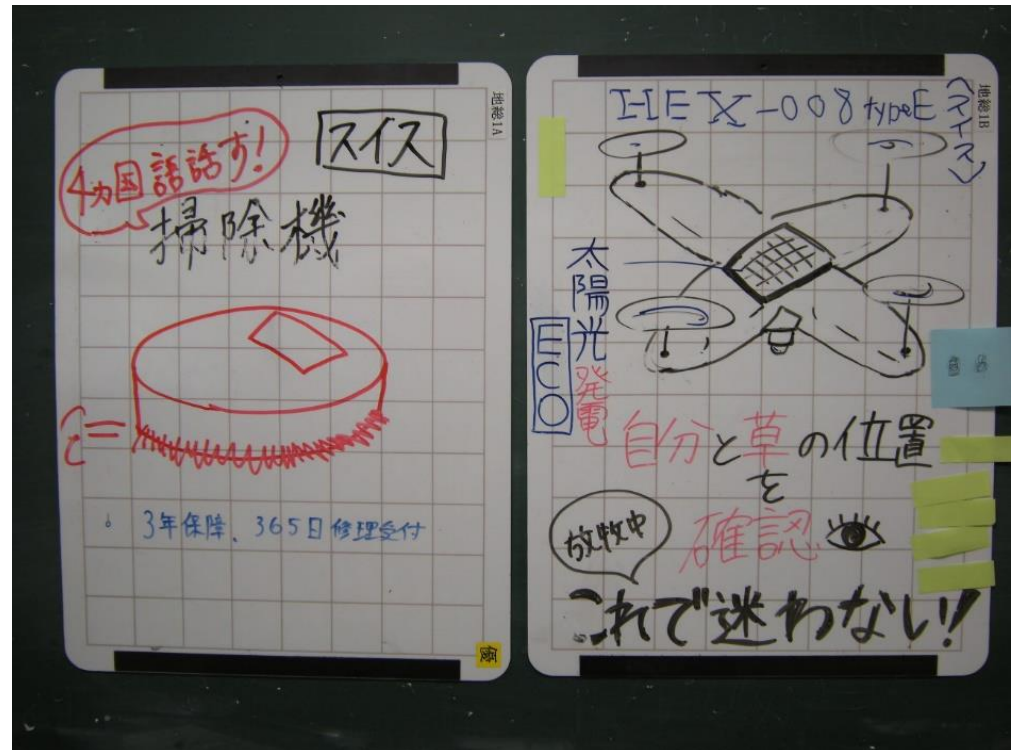 地総1A
スイス
4ヵ国語話す!
掃除機
3年保障、365日修理受付
優
地総1B
HEX-008 typeE
(スイス)
太陽光発電
ECO
自分と草の位置
を
確認
放牧中
これで迷わない!!